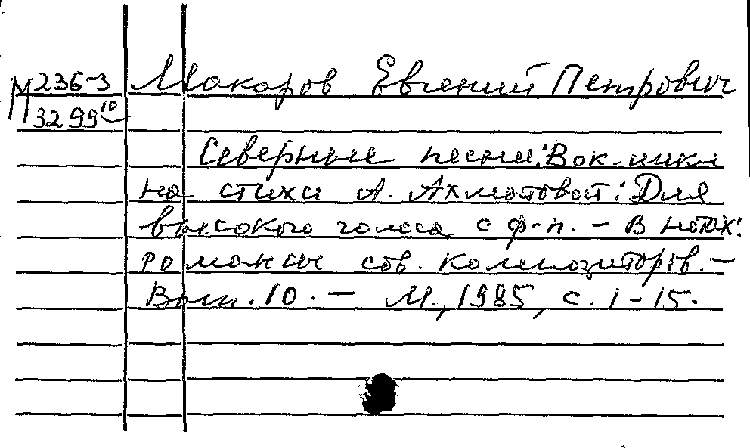 М 236-3 Макаров Евгений Петрович
3299 10
Северные песни: Вок. цикл
на стихи А. Ахматовой: Для
высокого голоса с ф-п. – В нотах:
романсы сов. композиторов. –
Вып. 10. – М., 1985, с. 1-15.